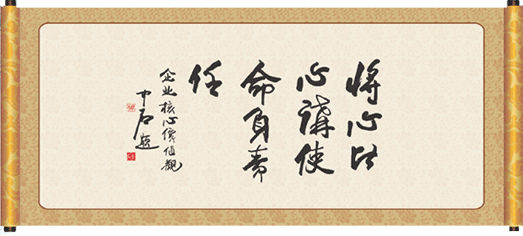 將心比
心講使
命負責
任
企业核心價值觀
中石題